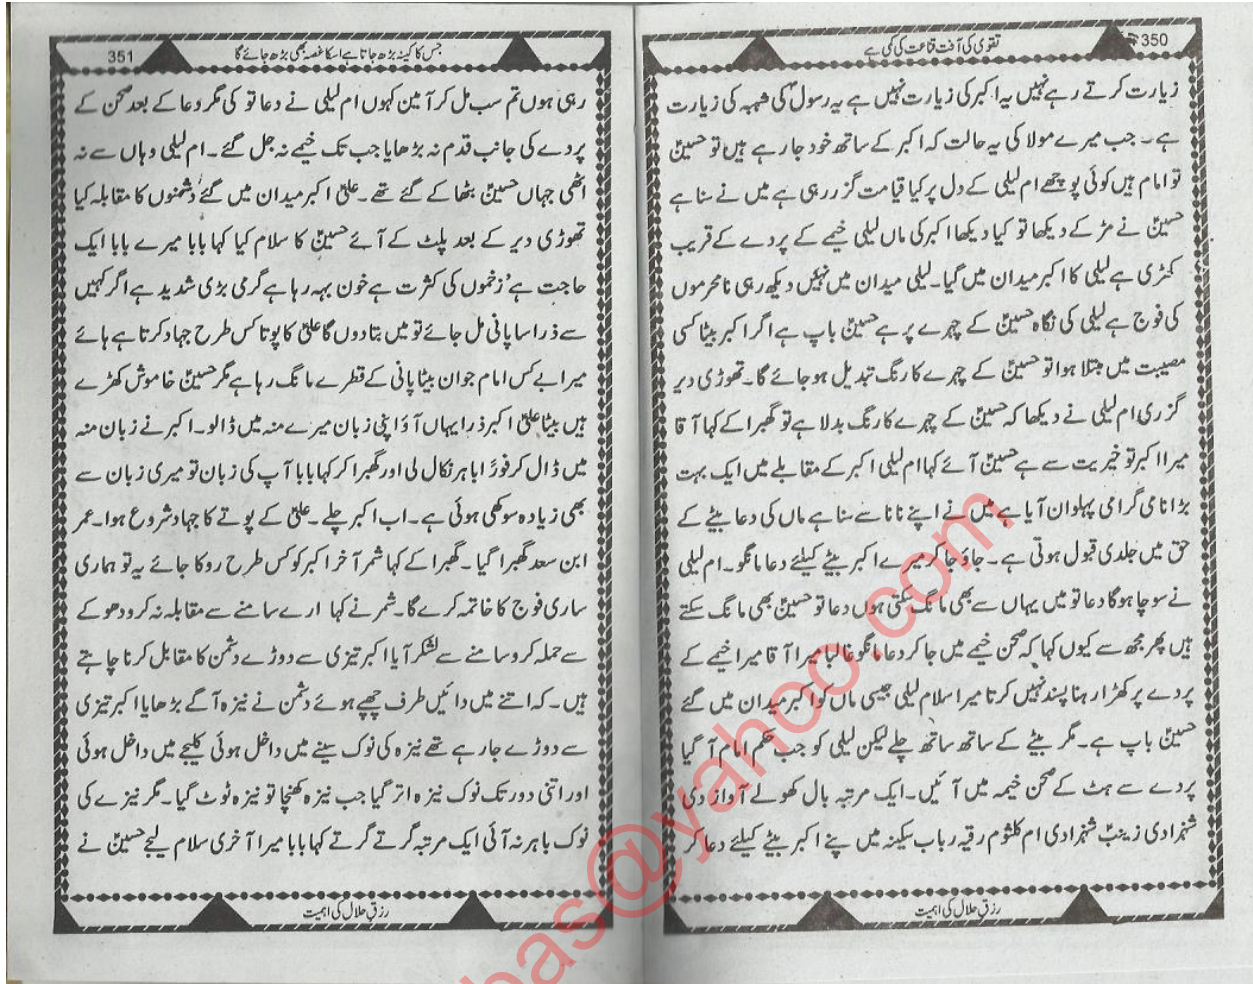 350 تقویٰ کی آفت قناعت کی کمی ہے
زیارت کرتے رہے نہیں یہ اکبر کی زیارت نہیں ہے یہ رسولؐ کی شبہہ کی زیارت
ہے۔ جب میرے مولا کی یہ حالت کہ اکبر کے ساتھ خود جا رہے ہیں تو حسینؑ
تو امام ہیں کوئی پوچھے ام لیلی کے دل پر کیا قیامت گزر رہی ہے میں نے سنا ہے
حسینؑ نے مڑ کے دیکھا تو کیا دیکھا اکبر کی ماں لیلی خیمے کے پردے کے قریب
کھڑی ہے لیلی کا اکبر میدان میں گیا۔ لیلی میدان میں نہیں دیکھ رہی نا محرموں
کی فوج ہے لیلی کی نگاہ حسینؑ کے چہرے پر ہے حسینؑ باپ ہے اگر اکبر بیٹا کسی
مصیبت میں مبتلا ہوا تو حسینؑ کے چہرے کا رنگ تبدیل ہو جائے گا۔ تھوڑی دیر
گزری ام لیلی نے دیکھا کہ حسینؑ کے چہرے کا رنگ بدلا ہے تو گھبرا کے کہا آقا
میرا اکبر تو خیریت سے ہے حسینؑ آئے کہا ام لیلی اکبر کے مقابلے میں ایک بہت
بڑا نامی گرامی پہلوان آیا ہے میں نے اپنے نانا سے سنا ہے ماں کی دعا بیٹے کے
حق میں جلدی قبول ہوتی ہے۔ جاؤ جا کر میرے اکبر بیٹے کیلئے دعا مانگو۔ ام لیلی
نے سوچا ہوگا دعا تو میں یہاں سے بھی مانگ سکتی ہوں دعا تو حسینؑ بھی مانگ سکتے
ہیں پھر مجھ سے کیوں کہا کہ صحن خیمے میں جا کر دعا مانگو غالبا میرا آقا میرا خیمے کے
پردے پر کھڑا رہنا پسند نہیں کرتا میرا سلام لیلی جیسی ماں کو اکبر میدان میں گئے
حسینؑ باپ ہے۔ مگر بیٹے کے ساتھ ساتھ چلے لیکن لیلی کو جب حکم امام آ گیا
پردے سے ہٹ کے صحن خیمہ میں آئیں۔ ایک مرتبہ بال کھولے آواز دی
شہزادی زینبؑ شہزادی ام کلثوم رقیہ رباب سکینہ میں پنے اکبر بیٹے کیلئے دعا کر
رزق حلال کی اہمیت
جس کا کینہ بڑھ جاتا ہے اسکا غصہ بھی بڑھ جائے گا 351
رہی ہوں تم سب مل کر آمین کہوں ام لیلی نے دعا تو کی مگر دعا کے بعد صحن کے
پردے کی جانب قدم نہ بڑھایا جب تک خیمے نہ جل گئے۔ ام لیلی وہاں سے نہ
اٹھی جہاں حسینؑ بٹھا کے گئے تھے۔ علیؑ اکبر میدان میں گئے دشمنوں کا مقابلہ کیا
تھوڑی دیر کے بعد پلٹ کے آئے حسینؑ کا سلام کیا کہا بابا میرے بابا ایک
حاجت ہے زخموں کی کثرت ہے خون بہہ رہا ہے گرمی بڑی شدید ہے اگر کہیں
سے ذرا سا پانی مل جائے تو میں بتا دوں گا علیؑ کا پوتا کس طرح جہاد کرتا ہے ہائے
میرا بے کس امام جوان بیٹا پانی کے قطرے مانگ رہا ہے مگر حسینؑ خاموش کھڑے
ہیں بیٹا علیؑ اکبر ذرا یہاں آؤ اپنی زبان میرے منہ میں ڈالو۔ اکبر نے زبان منہ
میں ڈال کر فوراً باہر نکال لی اور گھبرا کر کہا بابا آپ کی زبان تو میری زبان سے
بھی زیادہ سوکھی ہوئی ہے۔ اب اکبر چلے۔ علیؑ کے پوتے کا جہاد شروع ہوا۔ عمر
ابن سعد گھبرا گیا۔ گھبرا کے کہا شمر آخر اکبر کو کس طرح روکا جائے یہ تو ہماری
ساری فوج کا خاتمہ کرے گا۔ شمر نے کہا ارے سامنے سے مقابلہ نہ کرو دھوکے
سے حملہ کرو سامنے سے لشکر آیا اکبر تیزی سے دوڑے دشمن کا مقابل کرنا چاہتے
ہیں۔ کہ اتنے میں دائیں طرف چھپے ہوئے دشمن نے نیزہ آگے بڑھایا اکبر تیزی
سے دوڑے جا رہے تھے نیزہ کی نوک سینے میں داخل ہوئی کلیجے میں داخل ہوئی
اور اتنی دور تک نوک نیزہ اتر گیا جب نیزہ کھنچا تو نیزہ ٹوٹ گیا۔ مگر نیزے کی
نوک باہر نہ آئی ایک مرتبہ گرتے گرتے کہا بابا میرا آخری سلام لیجے حسینؑ نے
رزق حلال کی اہمیت
bas@yahoo.com